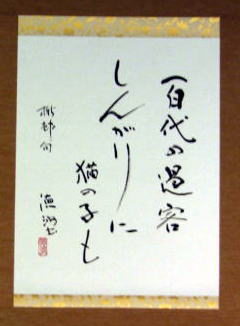 百代の過客
しんがりに
猫の子も
楸邨句